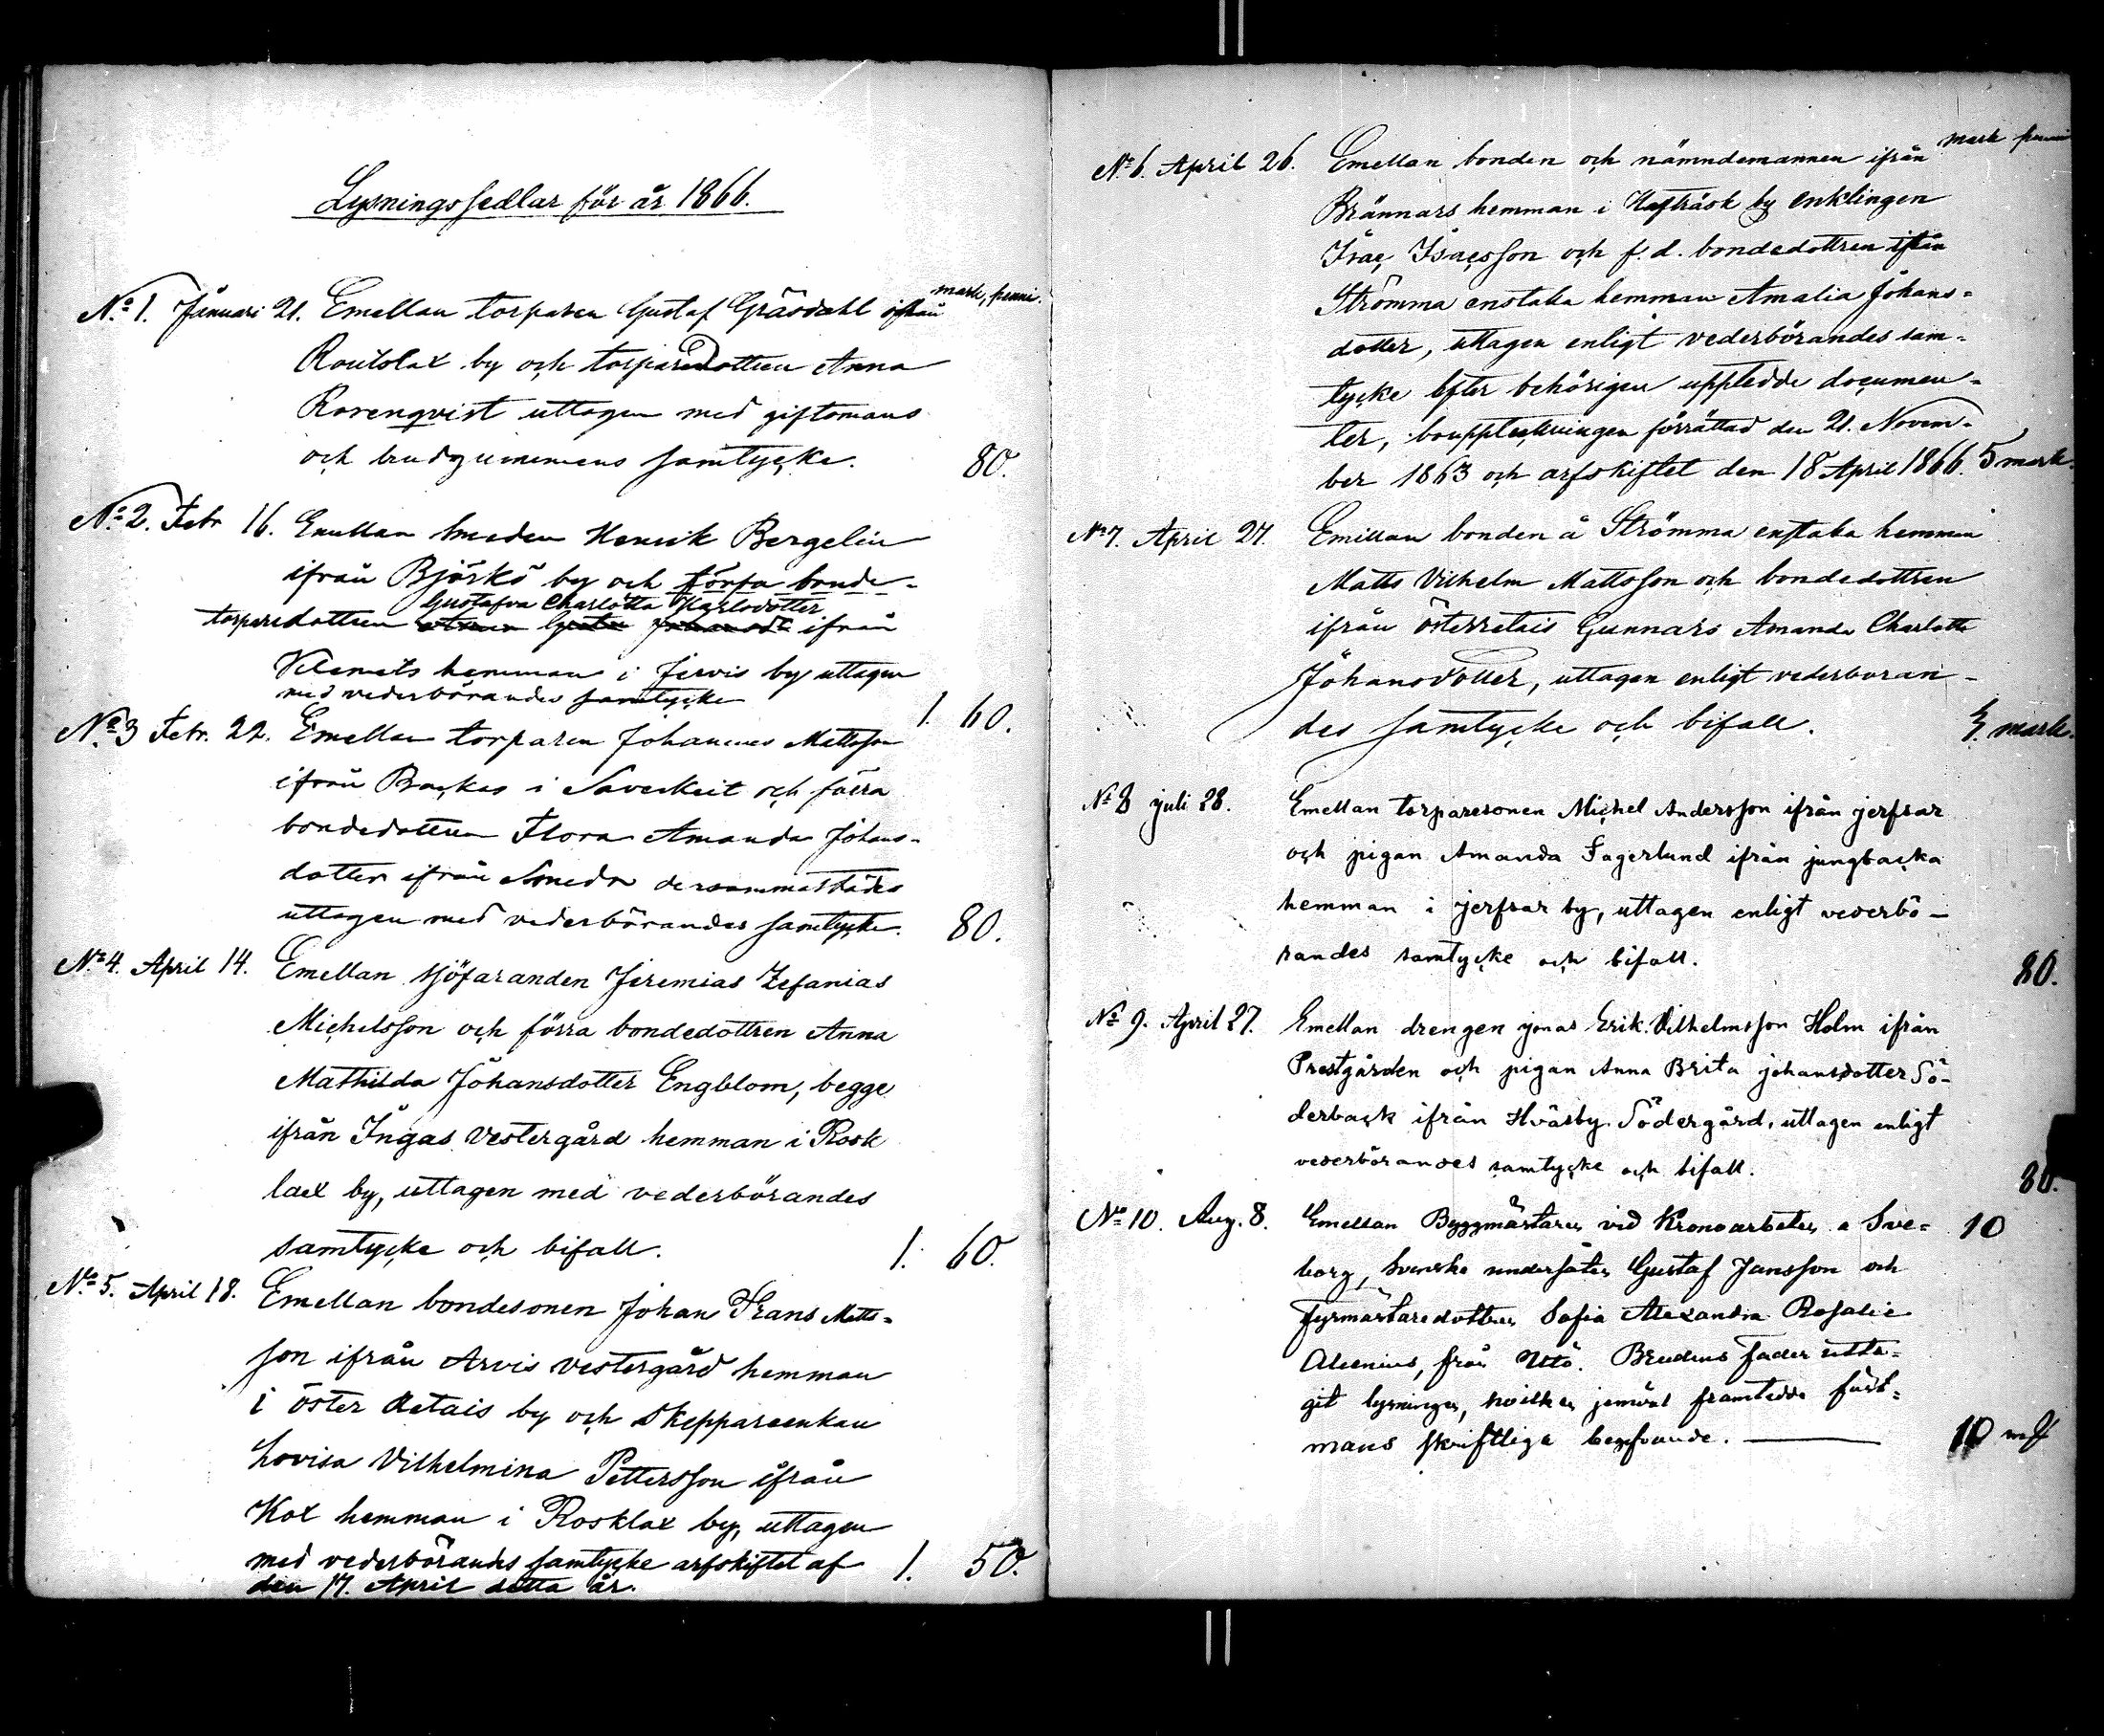 Lysningssedlar för år 1866.
mark, penni.
No 1. Januari 21. Emellan torparen Gustaf Gräsdahl ifrån
Rautolax by och torparedottren Anna
Rosenqvist uttagen med giftomans
och brudgummens samtycke. 80.
No 2. Febr 16. Emellan smeden Henrik Bergelin
ifrån Björkö by och förra bonde-
Gustafva Charlotta Karlsdotter
torparedottren ifrån
Klemets hemman i Jervis by uttagen
med vederbörandes samtycke 1. 60.
No 3 Febr. 22. Emellan torparen Johannes Mattsson
ifrån Backas i Saverkeit och förra
bondedottren Flora Amanda Johans-
dotter ifrån Smeds dersammastädes
uttagen med vederbörandes samtycke. 80.
No 4. April 14. Emellan sjöfaranden Jeremias Zefanias
Michelsson och förra bondedottren Anna
Mathilda Johansdotter Engblom, begge
ifrån Ingas Vestergård hemman i Rosk
lax by, uttagen med vederbörandes
samtycke och bifall. 1. 60.
No 5. April 18. Emellan bondesonen Johan Frans Matts-
son ifrån Arvis vestergård hemman
i öster Retais by och skeppareenkan
Lovisa Vilhelmina Pettersson ifrån
Kox hemman i Rosklax by, uttagen
med vederbörandes samtycke arfskiftet af 1. 50.
den 17. April detta år.
mark penni
No 6. April 26. Emellan bonden och nämndemannen ifrån
Brännars hemman i Hafträsk by enklingen
Isac Isacsson och f. d. bondedottren ifrån
Strömma enstaka hemman Amalia Johans-
dotter, uttagen enligt vederbörandes sam-
tycke efter behörigen uppledde documen-
ter, bouppteckningen förrättad den 21. Novem-
ber 1863 och arfskiftet den 18 April 1866. 5 mark.
No 7. April 27. Emillan bonden å Strömma enstaka hemman
Matts Vilhelm Mattsson och bondedottren
ifrån Österretais Gunnars Amanda Charlotta
Johansdotter, uttagen enligt vederböran-
des samtycke och bifall. mark.
No 8 juli 28. Emellan torparesonen Michel Andersson ifrån jerfsar
och pigan Amanda Fagerlund ifrån jungbacka
hemman i jerfsar by, uttagen enligt vederbö-
randes samtycke och bifall. 80.
No 9. April 27. Emellan drengen jonas Erik Vilhelmsson Holm ifrån
Prestgården och pigan Anna Brita johansdotter Sö-
derback ifrån Hväsby Södergård, uttagen enligt
vederbörandes samtycke och bifall. 80.
No 10. Aug. 8. Emellan Byggmästaren vid Kronoarbeten a Sve= 10
borg, Svenske undersåten Gustaf Jansson och
fyrmästaredottren Sofia Alexandra Rosalie
Alcenius, från Utö. Brudens fader utta=
git lysningen, hvilken jemväl framtedde fäst=
mans skriftliga begifvande. 10 mk